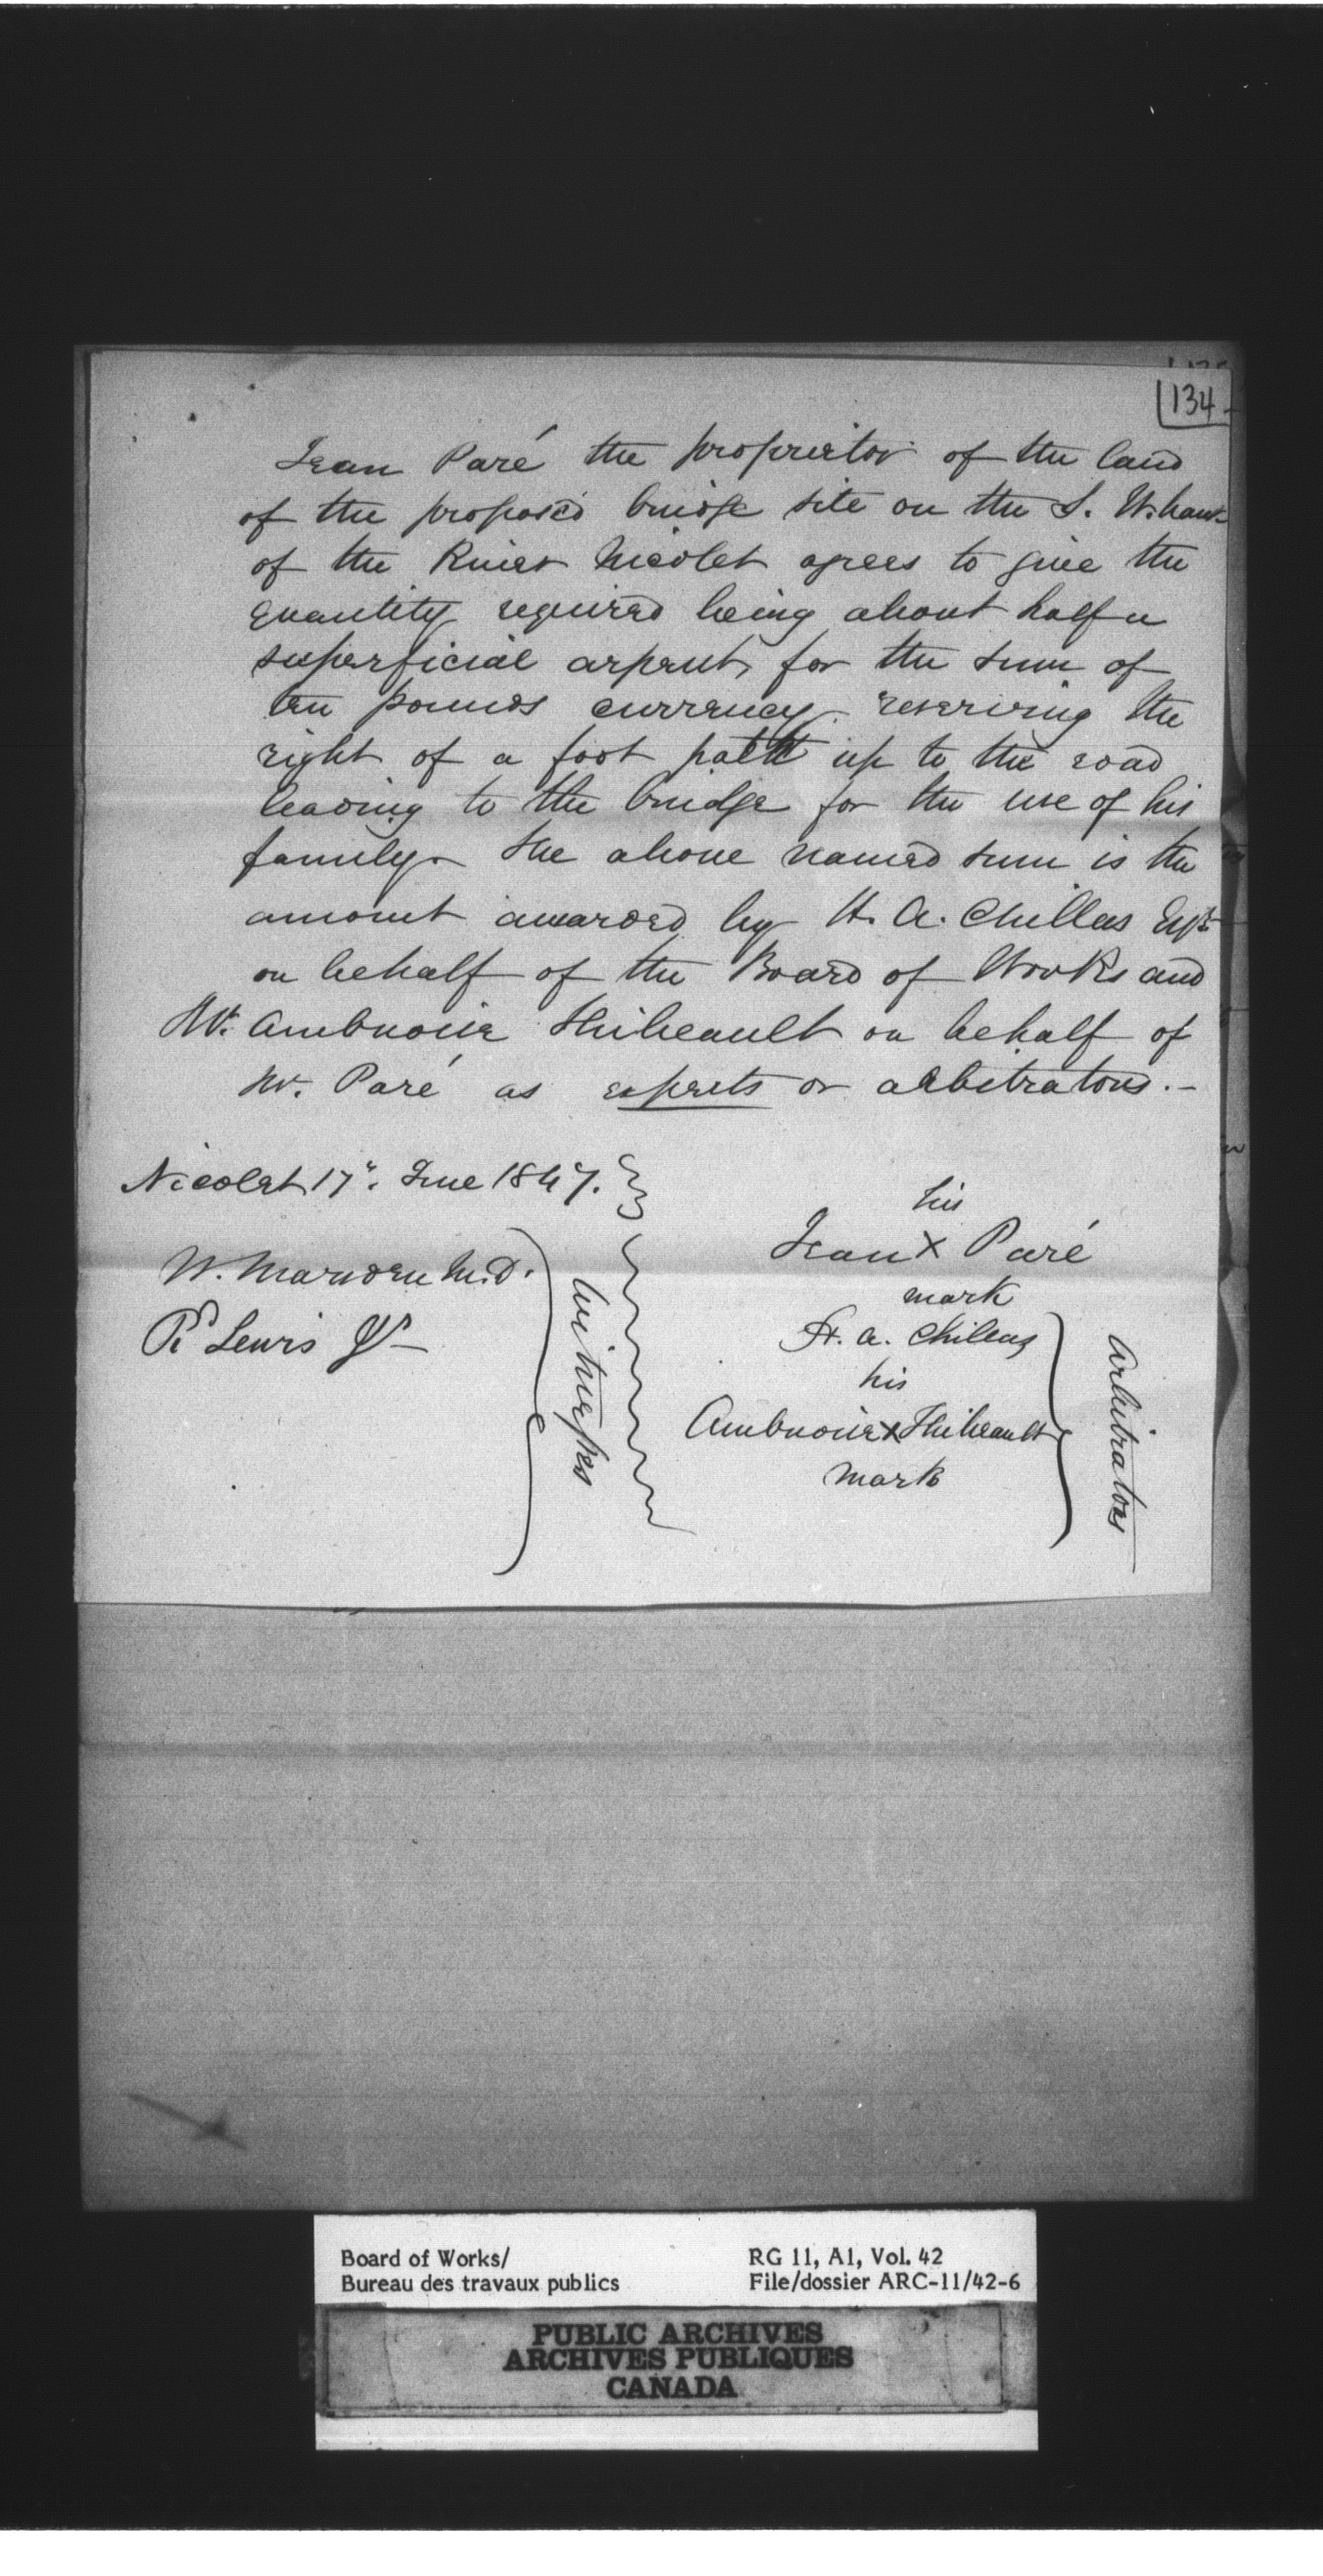 134
Jean Paré the proprietor of the land
of the proposed bridge site on the S. W. bank
of the River Nicolet agrees to give the
quantity required being about half a
superficial arpent, for the sum of
ten pounds currency reserving the
right of a foot path up to the road
leading to the bridge for the use of his
family. The above named sum is the
amount awarded by H. A. Chillas Esqr
on behalf of the Board of Works and
Mr. Ambroise Thibeault on behalf of
Mr. Paré as experts or arbitrators.-
Nicolet 17". June 1847.
W. Marsden M.D.
Rd Lewis Jr
Witnesses
his
Jean X Paré
mark
H. A. Chillas
his
Ambroise X Thibeault
mark
Arbitrators
Board of Works/
Bureau des travaux publics
RG 11, A1, Vol. 42
File/dossier ARC-11/42-6
PUBLIC ARCHIVES
ARCHIVES PUBLIQUES
CANADA